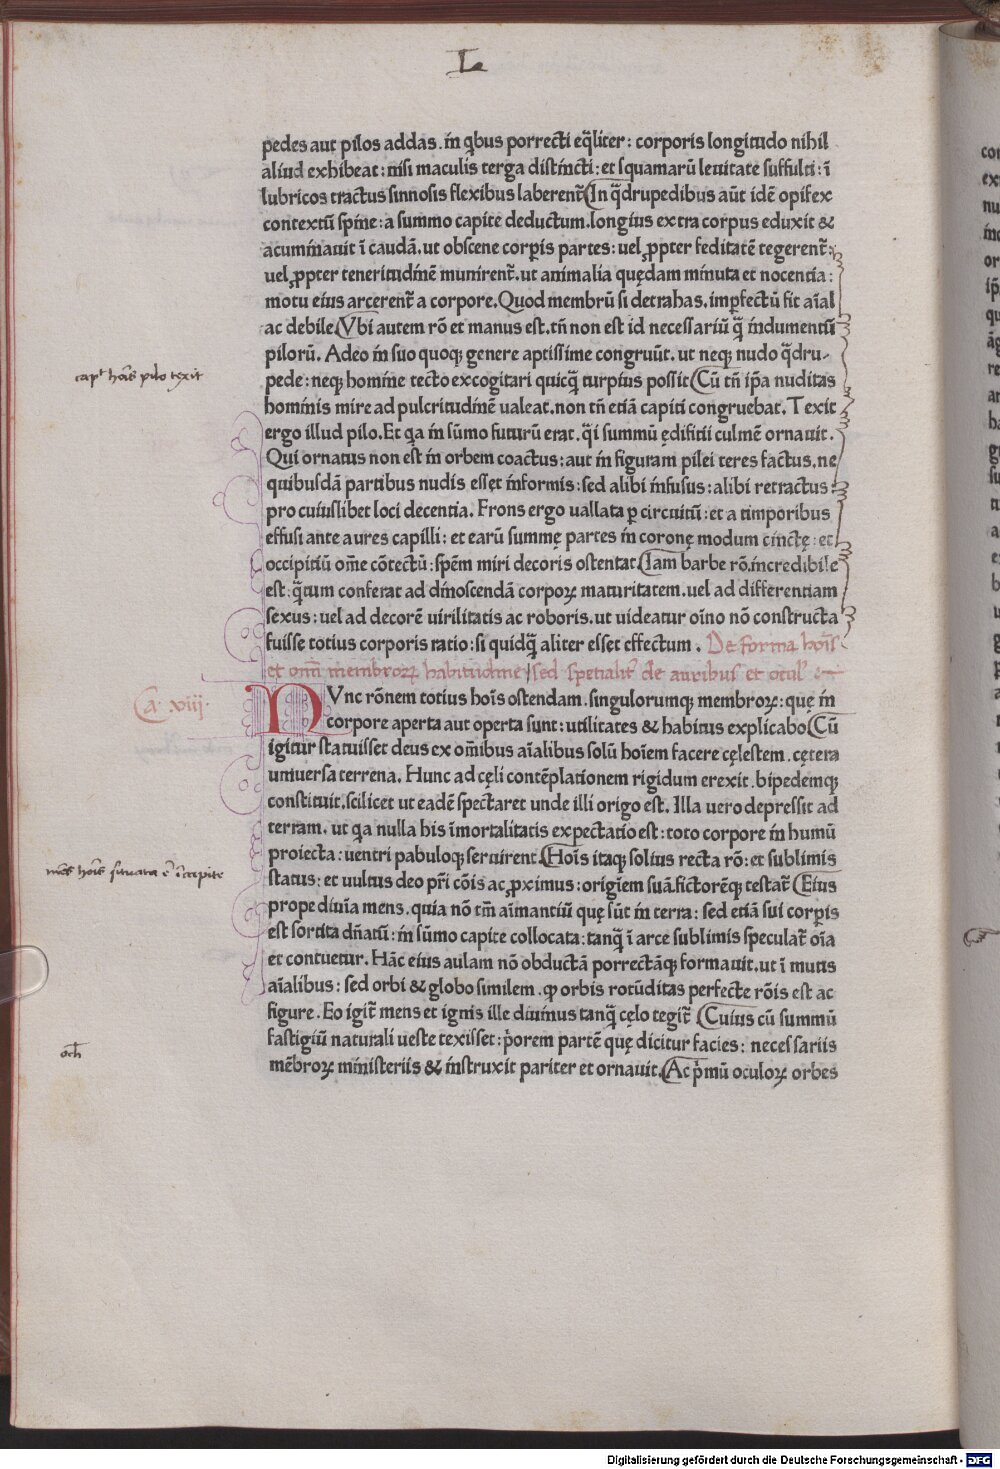 L
pedes aut pilos addas. in qͥbus porrecti eq̃liter: corporis longitudo nihil
aliud exhibeat: nisi maculis terga distincti: et squamarū leuitate suffulti: ī
lubricos tractus sinnosis flexibus laberent̃ (In q̃drupedibus aūt idē opifex
contextū spine: a summo capite deductum. longius extra corpus eduxit &
acuminauit ī caudā. ut obscene corꝑis partes: uel ꝓpter feditatē tegerent̃:
uel ꝓpter teneritudinē munirent̃. ut animalia quędam minuta et nocentia:
motu eius arcerent̃ a corpore. Quod membrū si detrahas. imꝑfectū fit aīal
ac debile (Vbi autem rō et manus est. tñ non est id necessariū q̃ indumentū
pilorū. Adeo in suo quoqꝫ genere aptissime congruūt. ut neqꝫ nudo q̃dru-
pede: neqꝫ homine tecto excogitari quicq̃ turpius possit (Cū tñ ip̄a nuditas
capͭ hoīs pilo texit
hominis mire ad pulcritudinē ualeat. non tñ etiā capiti congruebat. Texit
ergo illud pilo. Et qa in sūmo futurū erat. q̃i summū ędifitii culmē ornauit.
Qui ornatus non est in orbem coactus: aut in figuram pilei teres factus. ne
quibusdā partibus nudis esset informis: sed alibi infusus: alibi retractus:
pro cuiuslibet loci decentia. Frons ergo uallata ꝑ circuitū: et a timporibus
effusi ante aures capilli: et earū summę partes in coronę modum cinctę: et
occipitiū om̄e cōtectū: spēm miri decoris ostentat (Iam barbe rō. incredibile
est: q̃tum conferat ad dinoscendā corpoꝝ maturitatem. uel ad differentiam
sexus: uel ad decorē uirilitatis ac roboris. ut uideatur oīno nō constructa
fuisse totius corporis ratio: si quidq̃ aliter esset effectum. De forma hoīs
et om̄ membroꝝ habitudine sed spetialit̃ de auribus et ocul̃
Ca. xiij.
NVnc rōnem totius hoīs ostendam. singulorumqꝫ membroꝝ: quę in
corpore aperta aut operta sunt: utilitates & habitus explicabo (Cū
igitur statuisset deus ex om̄ibus aīalibus solū hoīem facere cęlestem. cętera
uniuersa terrena. Hunc ad cęli contēplationem rigidum erexit. bipedemqꝫ
constituit. scilicet ut eadē spectaret unde illi origo est. Illa uero depressit ad
terram. ut qa nulla his īmortalitatis expectatio est: toto corpore in humū
proiecta: uentri pabuloqꝫ seruirent (Hoīs itaqꝫ solius recta rō: et sublimis
mēs hoīs situata ē ī capite
status: et uultus deo pr̄i cōis ac ꝓximus: origiem suā. fictorēqꝫ testat̃ (Eius
prope diuīa mens. quia nō tm̄ aīmantiū quę sūt in terra: sed etiā sui corꝑis
est sortita dñatū: in sūmo capite collocata: tanq̃ ī arce sublimis speculat̃ oīa
et contuetur. Hāc eius aulam nō obductā porrectāqꝫ formauit. ut ī mutis
aīalibus: sed orbi & globo similem. ꝙ orbis rotūditas perfecte rōis est ac
figure. Eo igit̃ mens et ignis ille diuinus tanq̃ cęlo tegit̃ (Cuius cū summū
fastigiū naturali ueste texisset: pͥorem partē quę dicitur facies: necessariis
och̄
mēbroꝝ ministeriis & instruxit pariter et ornauit. (Ac pͥmū oculoꝝ orbes
Digitalisierung gefördert durch die Deutsche Forschungsgemeinschaft - DFG